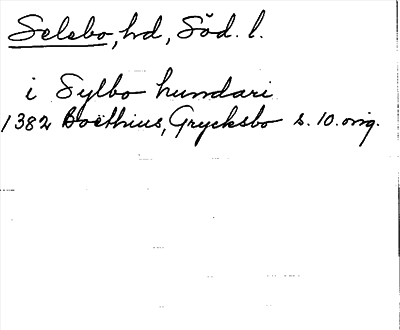 Selebo, hd, Söd. l.
i Sylbo hundari
1382 Boëthius, Grycksbo s. 10. orig.